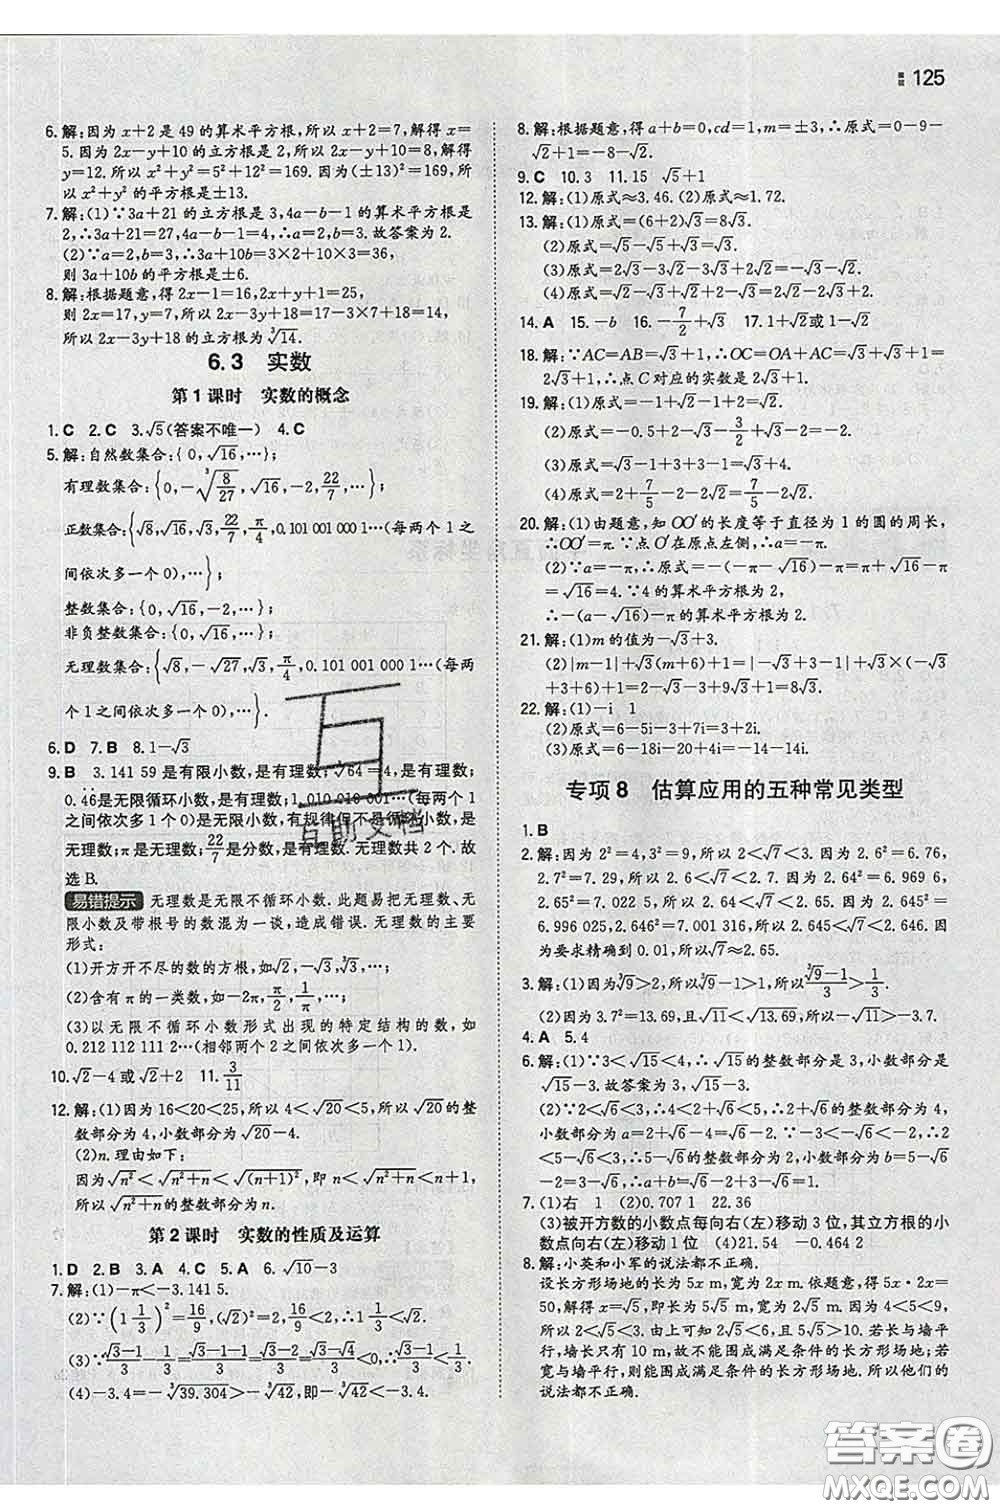 答案 125
6.解:因为x+2是49的算术平方根,所以x+2=7,解得x=
5.因为2x-y+10的立方根是2,所以2x-y+10=8,解得
y=12.所以x²+y²=5²+12²=169,因为(±13)²=169,所以
x²+y²的平方根是±13.
7.解:(1)∵3a+21的立方根是3,4a-b-1的算术平方根是
2,∴3a+21=27,4a-b-1=4,∴a=2,b=3.故答案为2.
(2)∵a=2,b=3,∴3a+10b=3×2+10×3=36,
则3a+10b的平方根是±6.
8.解:根据题意,得2x-1=16,2x+y+1=25,
则2x=17,y=7,所以2x-3y+18=17-3×7+18=14,
所以2x-3y+18的立方根为∛14.
6.3 实数
第1课时 实数的概念
1.C 2.C 3.√5(答案不唯一) 4.C
5.解:自然数集合:{0,√16,…};
有理数集合:{0,-∛(8/27),√16,-2,22/7,…};
正数集合:{√8,√16,√3,22/7,π/4,0.101 001 000 1…(每两个1之
间依次多一个0),…};
整数集合:{0,√16,-2,…};
非负整数集合:{0,√16,…};
无理数集合:{√8,-√27,√3,π/4,0.101 001 000 1…(每两
个1之间依次多一个0),…}.
6.D 7.B 8.1-√3
9.B 3.141 59是有限小数,是有理数;√64=4,是有理数;
0.46是无限循环小数,是有理数;1.010 010 001…(每两个1
之间依次多1个0),有规律但不是循环小数,是无限小数,是
无理数;π是无理数;22/7是分数,是有理数.无理数共2个.故
选B.
易错提示 无理数是无限不循环小数.此题易把无理数、无
限小数及带根号的数混为一谈,造成错误.无理数的主要
形式:
(1)开方开不尽的数的方根,如√2,-√3,∛3等;
(2)含有π的一类数,如2π,π/2,1/π等;
(3)以无限不循环小数形式出现的特定结构的数,如
0.212 112 111 2…(相邻两个2之间依次多一个1).
10.√2-4或√2+2 11.3/11
12.解:(1)因为16<20<25,所以4<√20<5,所以√20的整
数部分为4,小数部分为√20-4.
(2)n.理由如下:
因为√n²<√(n²+n)<√(n+1)²,即n<√(n²+n)<n+1,
所以√(n²+n)的整数部分为n.
第2课时 实数的性质及运算
1.D 2.B 3.A 4.C 5.A 6.√10-3
7.解:(1)-π<-3.141 5.
(2)∵(1 1/3)²=16/9,(√2)²=2,16/9<2,∴1 1/3<√2.
(3)∵(√3-1)/3-1/3=(√3-1-1)/3=(√3-2)/3<0,∴(√3-1)/3<1/3.
(4)-3.4=-∛39.304>-∛42,即-∛42<-3.4.
8.解:根据题意,得a+b=0,cd=1,m=±3,∴原式=0-9-
√2+1=-8-√2.
9.C 10.3 11.15 √5+1
12.解:(1)原式≈3.46.(2)原式≈1.72.
13.解:(1)原式=(6+2)√3=8√3.
(2)原式=√5-√5+√3=√3.
(3)原式=2√3-3√2-3√3=-√3-3√2.
(4)原式=√3-√2+√3+√2=2√3.
14.A 15.-b 16.-7/2+√3 17.1+√2或1-√2
18.解:∵AC=AB=√3+1,∴OC=OA+AC=√3+√3+1=
2√3+1,∴点C对应的实数是2√3+1.
19.解:(1)原式=-1+√2-1+2=√2.
(2)原式=-0.5+2-√3-3/2+√3=0.
(3)原式=4-4+√3-1-√3=-1.
(4)原式=2+7/5-2-√2=7/5-√2.
20.解:(1)由题意,知OO′的长度等于直径为1的圆的周长,
∴OO′=π.∵点O′在原点左侧,∴a=-π.
(2)∵a=-π,∴原式=-(-π-√16)-π=π+√16-
π=√16=4.∵4的算术平方根为2,
∴-(a-√16)-π的算术平方根为2.
21.解:(1)m的值为-√3+3.
(2)|m-1|+√3(m+6)+1=|-√3+3-1|+√3×(-√3
+3+6)+1=2-√3-3+9√3+1=8√3.
22.解:(1)-i 1
(2)原式=6-5i-3+7i=3+2i.
(3)原式=6-18i-20+4i=-14-14i.
专项8 估算应用的五种常见类型
1.B
2.解:因为2²=4,3²=9,所以2<√7<3.因为2.6²=6.76,
2.7²=7.29,所以2.6<√7<2.7.因为2.64²=6.969 6,
2.65²=7.022 5,所以2.64<√7<2.65.因为2.645²=
6.996 025,2.646²=7.001 316,所以2.645<√7<2.646.
因为要求精确到0.01,所以√7≈2.65.
3.解:(1)因为∛9>2,所以∛9-1>1,所以(∛9-1)/3>1/3.
(2)因为3.7²=13.69,且√13.69<√14,所以-√14<-3.7.
4.A 5.4
6.解:(1)∵3<√15<4,∴√15的整数部分是3,小数部分是
√15-3.故答案为3,√15-3.
(2)∵2<√6<3,∴4<2+√6<5,∴2+√6的整数部分为4,
小数部分为a=2+√6-4=√6-2.∵-3<-√6<-2,∴2
<5-√6<3,∴5-√6的整数部分为2,小数部分为b=5-√6-
2=3-√6,∴a+b-√6=√6-2+3-√6-√6=1-√6.
7.(1)右 1 (2)0.707 1 22.36
(3)被开方数的小数点每向右(左)移动3位,其立方根的小
数点向右(左)移动1位 (4)21.54 -0.464 2
8.解:小英和小军的说法都不正确.
设长方形场地的长为5x m,宽为2x m.依题意,得5x·2x=
50,解得x=√5,即长为5√5 m,宽为2√5 m.因为4<5<9,
所以2<√5<3.由上可知2√5<6,且5√5>10.若长与墙平
行,墙长只有10 m,故不能围成满足条件的长方形场地;若
宽与墙平行,则能围成满足条件的长方形场地,所以他们的
说法都不正确.
互助文档
答案圈
MXQE.COM